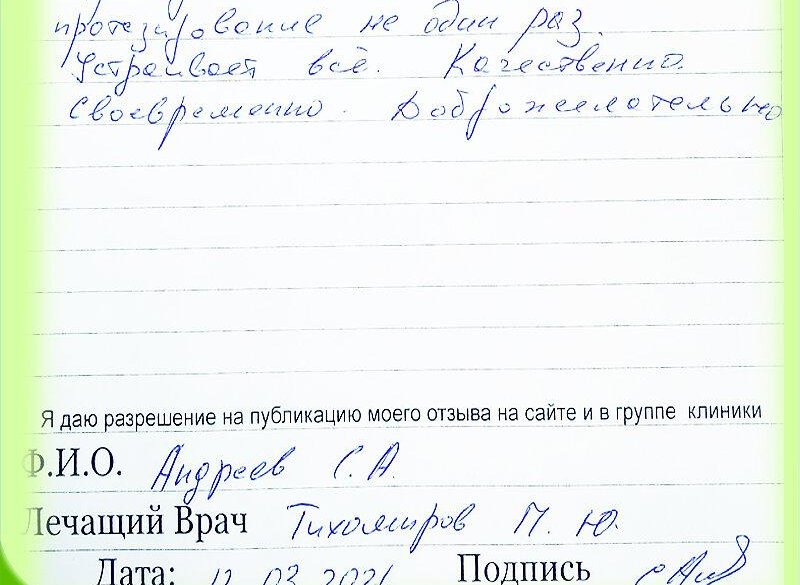 протезирование не один раз.
Устраивает всё. Качественно.
Своевременно. Доброжелательно
Я даю разрешение на публикацию моего отзыва на сайте и в группе клиники
Ф.И.О. Андреев С. А.
Лечащий Врач Тихомиров М. Ю.
Дата: 12.03.2021 Подпись